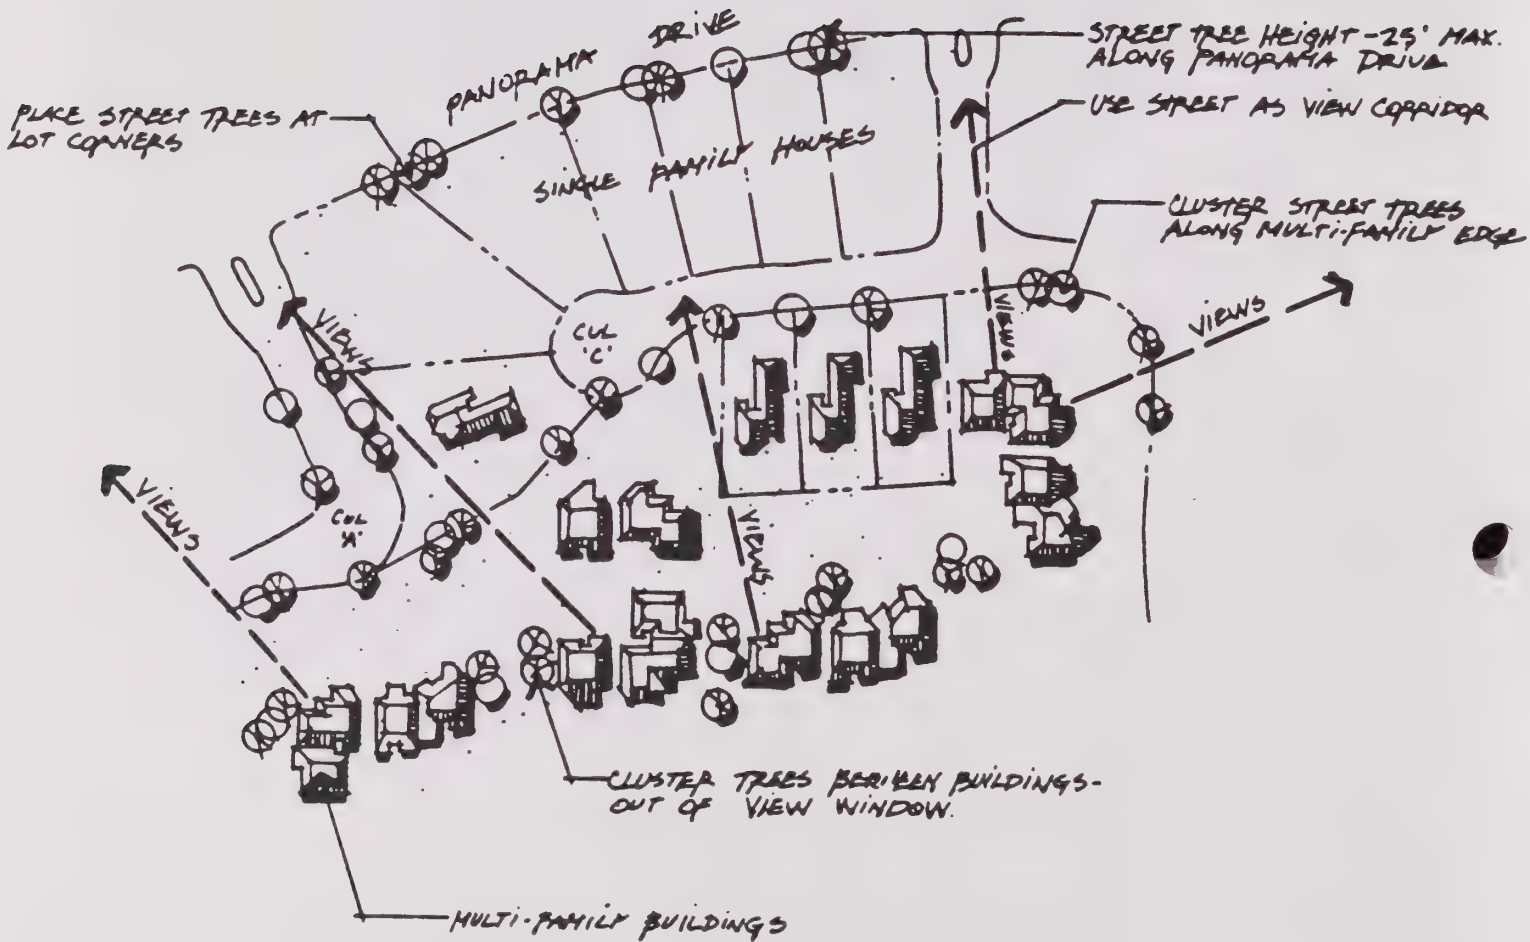 STREET TREE HEIGHT - 25' MAX.
ALONG PANORAMA DRIVE
USE STREET AS VIEW CORRIDOR
PLACE STREET TREES AT
LOT CORNERS
PANORAMA DRIVE
SINGLE FAMILY HOUSES
CLUSTER STREET TREES
ALONG MULTI-FAMILY EDGE
VIEWS
VIEWS
VIEWS
CUL
'C'
VIEWS
CUL
'A'
VIEWS
CLUSTER TREES BETWEEN BUILDINGS-
OUT OF VIEW WINDOW.
MULTI-FAMILY BUILDINGS